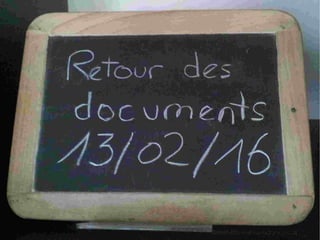 Retour des
documents
13/02/16